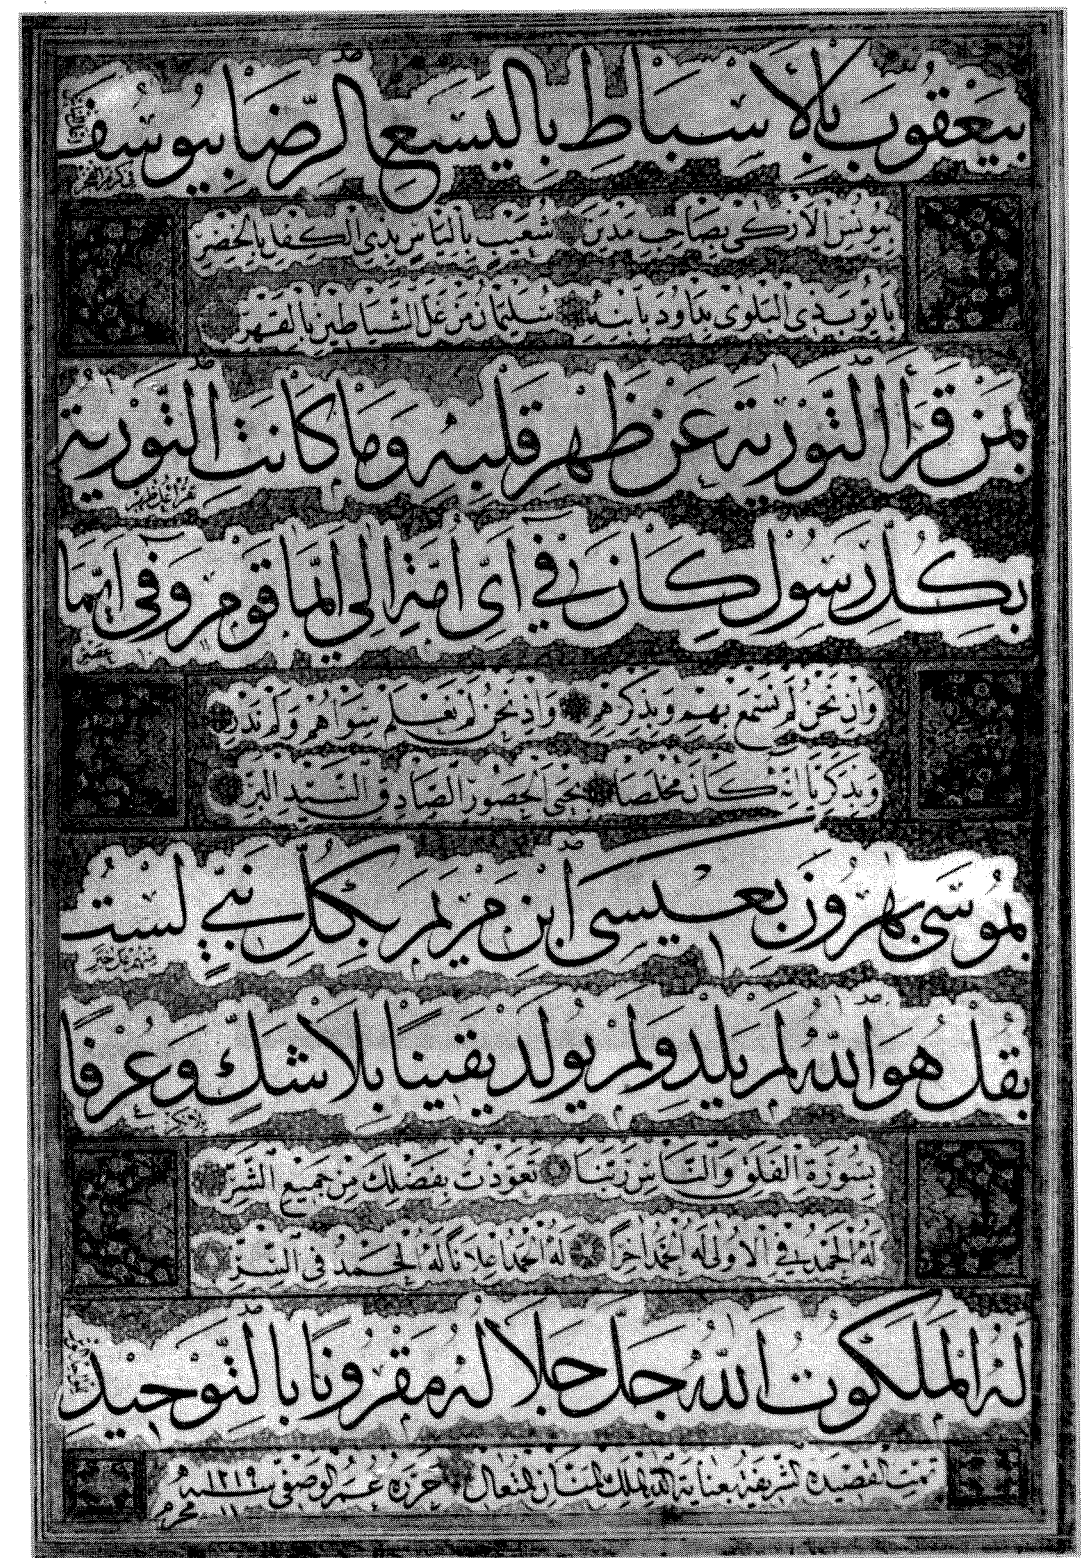 بِيَعْقُوبَ بِالْاَسْبَاطِ بِالْيَسَعِ الرِّضَا بِيُوسُفَ
بِيُونُسَ الْاَزْكٰى بِصَاحِبِ مَدْيَنَ شُعَيْبٍ بِاِلْيَاسٍ بِذِى الْكِفْلِ بِالْخَضِرْ
بِاَيُّوبَ ذِى الْبَلْوٰى بِدَاوُدَ بِابْنِهِ سُلَيْمَانَ مَنْ عَلَّ الشَّيَاطِينَ بِالْقَهْرِ
بِمَنْ قَرَأَ التَّوْرٰيةَ عَنْ ظَهْرِ قَلْبِهِ وَمَا كَانَتِ التَّوْرٰيةُ
بِكُلِّ رَسُولٍ كَانَ فِى اَىِّ اُمَّةٍ اِلٰى اَيِّمَا قَوْمٍ وَفِى اَيِّمَا
وَاِنْ نَحْنُ لَمْ نَسْمَعْ بِهِمْ وَبِذِكْرِهِمْ وَاِذْ نَحْنُ لَمْ نَعْلَمْ سِوَاهُمْ وَلَمْ نَدْرِ
وَبِذَكَرِيَّا اِنَّهُ كَانَ مُخْلِصًا بِيَحْيَى الْحَصُورِ الصَّادِقِ السَّيِّدِ الْبَرِّ
بِمُوسٰى بِهٰرُونَ بِعِيسَى ابْنِ مَرْيَمَ بِكُلِّ نَبِىٍّ لَسْتُ
بِقُلْ هُوَ اللّٰهُ لَمْ يَلِدْ وَلَمْ يُولَدْ يَقِينًا بِلَا شَكٍّ وَعُرْفًا
بِسُورَةِ الْفَلَقِ وَالنَّاسِ رَبَّنَا تَعَوَّذْتُ بِفَضْلِكَ مِنْ جَمِيعِ الشَّرِّ
لَهُ الْحَمْدُ فِى الْاُولٰى لَهُ الْحَمْدُ اٰخِرًا لَهُ الْحَمْدُ اِعْلَانًا لَهُ الْحَمْدُ فِى السِّرِّ
لَهُ الْمَلَكُوتُ اللّٰهُ جَلَّ جَلَالُهُ مَقْرُونًا بِالتَّوْحِيدِ
تمت القصيدة الشريفة بعناية الله الملك المنان المتعال حرره عمر الوصفى سنه ١٢١٩ محرم ١١